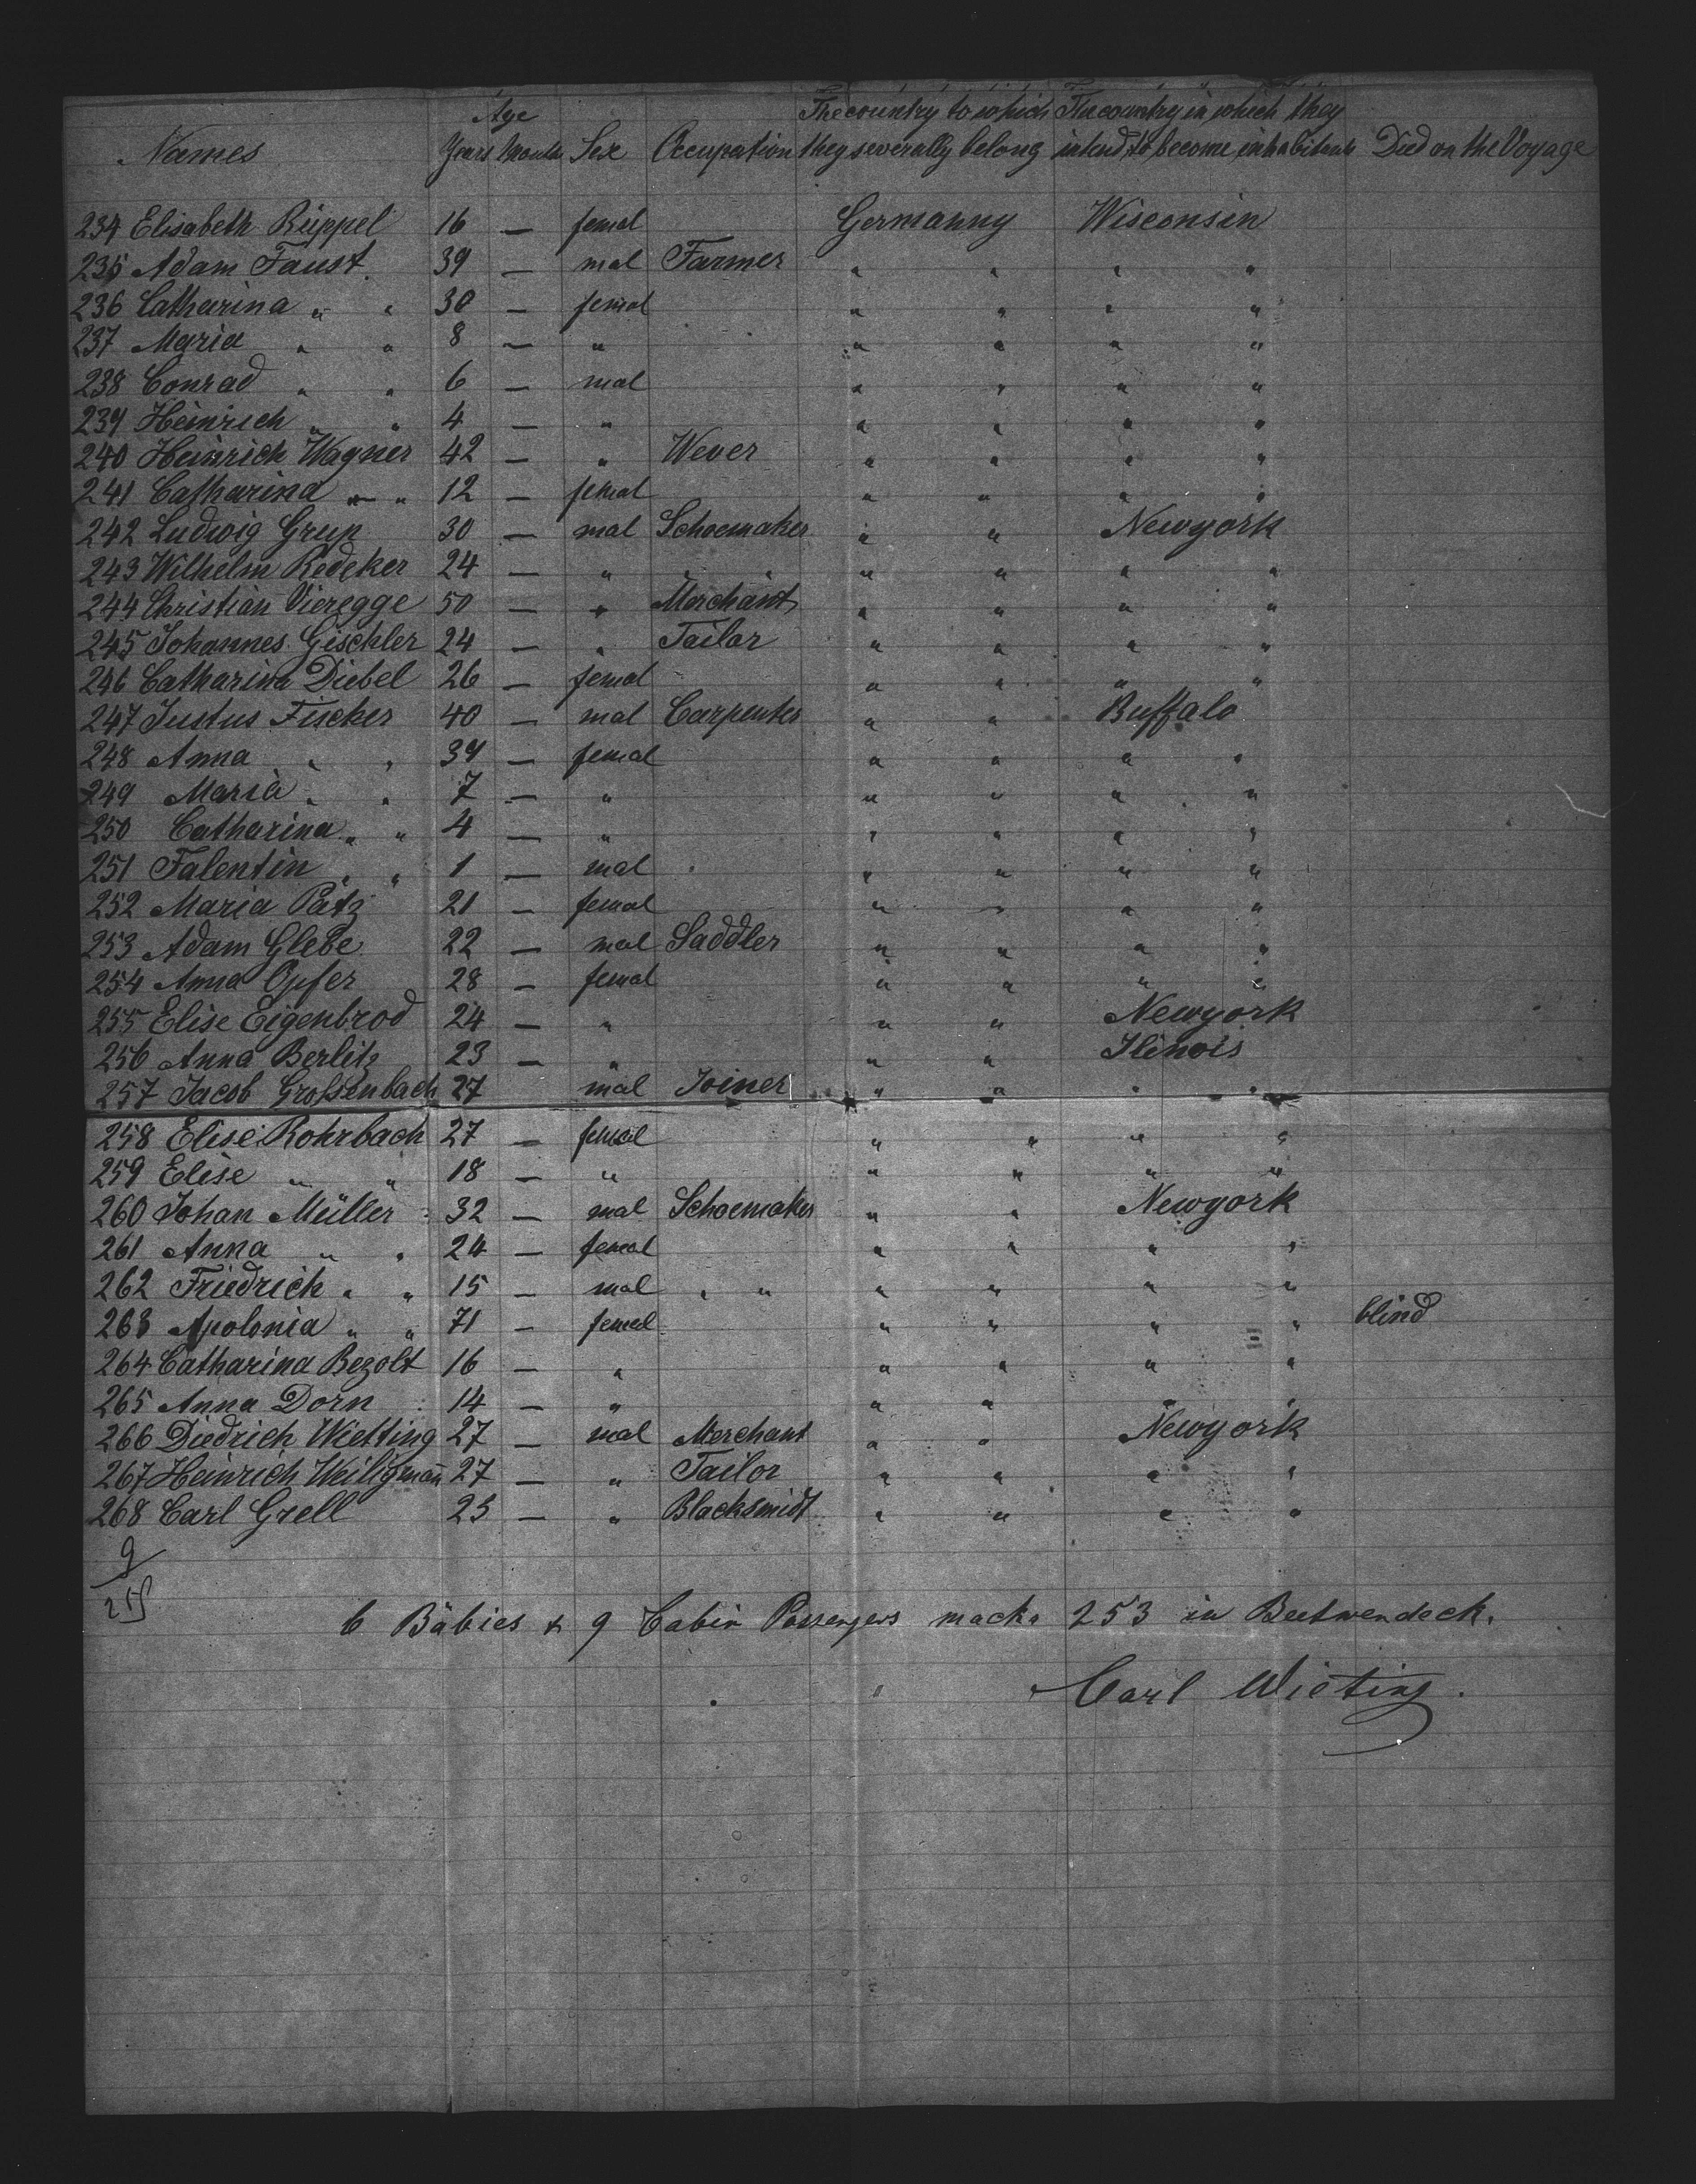 Age The country to which The country in which they
Names Years Months Sex Occupation they severally belong intend to become inhabitants Died on the Voyage
234 Elisabeth Rüppel 16 — femal Germanny Wisconsin
235 Adam Faust 39 — mal Farmer " " " "
236 Catharina " " 30 — femal " " " "
237 Maria " " 8 — " " " " "
238 Conrad " " 6 — mal " " " "
239 Heinrich " " 4 — " " " " "
240 Heinrich Wagner 42 — " Wever " " " "
241 Catharina " " 12 — femal " " " "
242 Ludwig Grup 30 — mal Schoemaker " " Newyork
243 Wilhelm Redeker 24 — " " " " " " "
244 Christian Vieregge 50 — " Merchant " " " "
245 Johannes Gischler 24 — " Tailor " " " "
246 Catharina Diebel 26 — femal " " " "
247 Justus Fischer 40 — mal Carpenter " " Buffalo
248 Anna " " 39 — femal " " " "
249 Maria " " 7 — " " " " "
250 Catharina " " 4 — " " " " "
251 Falentin " " 1 — mal " " " "
252 Maria Pätz 21 — femal " " " "
253 Adam Glebe 22 — mal Saddler " " " "
254 Anna Opfer 28 — femal " " " "
255 Elise Eigenbrod 24 — " " " Newyork
256 Anna Berlitz 23 — " " " Ilinois
257 Jacob Großenbach 27 mal Joiner " " " "
258 Elise Rohrbach 27 — femal " " " "
259 Elise " " 18 — " " " " "
260 Johan Müller 32 — mal Schoemaker " " Newyork
261 Anna " " 24 — femal " " " "
262 Friedrich " " 15 — mal " " " " " "
263 Apolonia " " 71 — femal " " " " blind
264 Catharina Bezolt 16 — " " " " "
265 Anna Dorn 14 — " " " " "
266 Diedrich Wietting 27 — mal Merchant " " Newyork
267 Heinrich Weiligmañ 27 — " Tailor " " " "
268 Carl Grell 25 — " Blacksmidt " " " "
9
6 Bäbies & 9 Cabin Passengers mack 253 in Beetwendeck.
Carl Wieting.